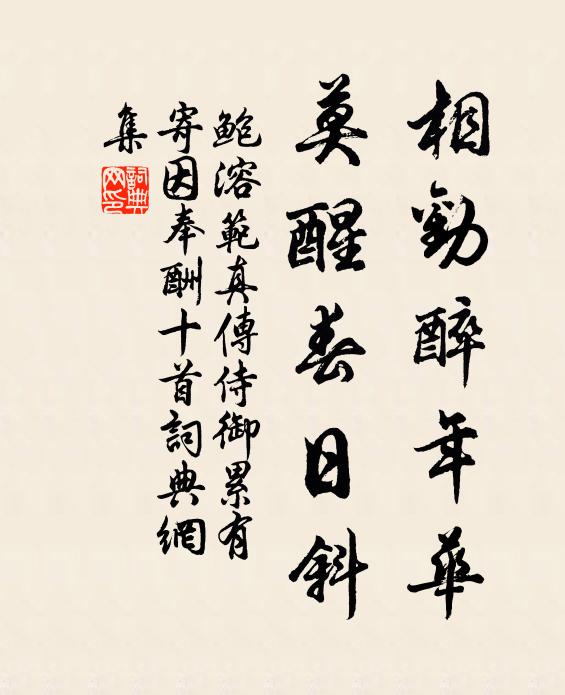 相勸醉年華
莫醒春日斜
鮑溶範真傳侍御累有
寄因奉酬十首詞典網
集
詞典
网印